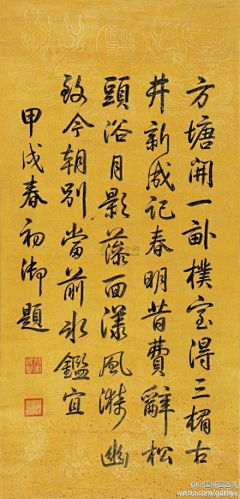 方塘開一畝樸室得三楹古
井新成記春明昔費辭松
頭浴月影面漾風漪幽
致今朝別當前水鑑宜
甲戌春初御題